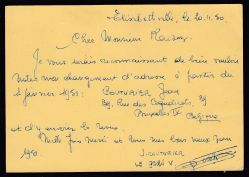 Elisabethville, le 20.11.50.
Cher Monsieur
Je vous serais reconnaissant de bien vouloir
noter mon changement d'adresse à partir du
1 février 1951: COUVREUR Jean
89, Rue des Coquelicots, 89
Bruxelles IV Belgique
et d'y envoyer la revue.
Mille fois merci et tous mes bons vœux pour
1950. J. COUVREUR